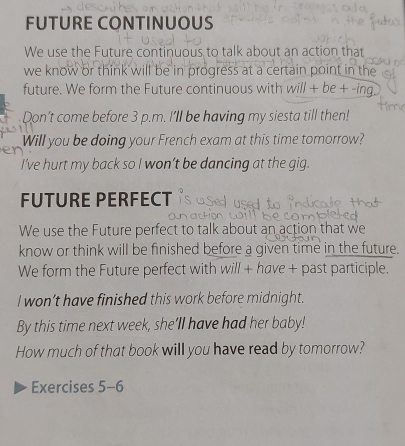 → describes an action that will be in progress at a
FUTURE CONTINUOUS
point in the future
it used to
We use the Future continuous to talk about an action that
we know or think will be in progress at a certain point in the
future. We form the Future continuous with will + be + -ing.
time
Don't come before 3 p.m. I'll be having my siesta till then!
will
Will you be doing your French exam at this time tomorrow?
I've hurt my back so I won't be dancing at the gig.
FUTURE PERFECT is used used to indicate that
an action will be completed
We use the Future perfect to talk about an action that we
certain
know or think will be finished before a given time in the future.
We form the Future perfect with will + have + past participle.
I won't have finished this work before midnight.
By this time next week, she'll have had her baby!
How much of that book will you have read by tomorrow?
▶ Exercises 5–6